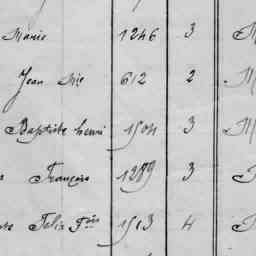 Marie 1246 3 M
Jean Mie 612 2 M
Baptiste henri 1504 3 M
François 1289 3
Felix Fois 1513 4